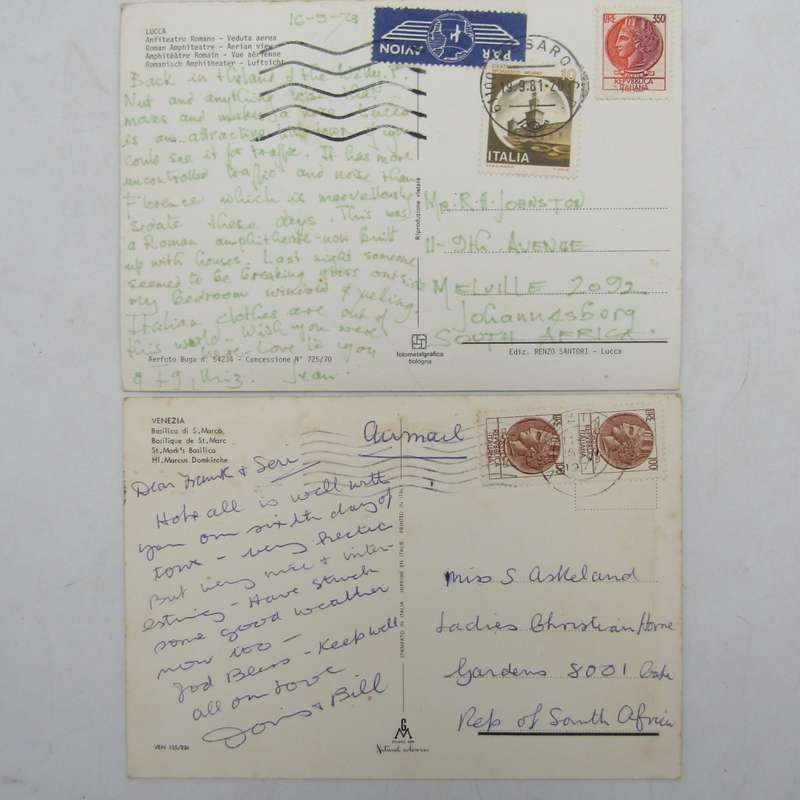 16-9-
LUCCA
Anfiteatro Romano - Veduta aerea
Roman Amphiteatre - Aerian view
Amphitéâtre Romain - Vue aérienne
Romanisch Amphitheater - Luftsicht
PAR AVION
LIRE 350
REPUBBLICA ITALIANA
10
ITALIA
19.9.81-20
Back in the land of the
Nut and anything else that
moves and makes a noise. Lucca
is an attractive if you
could see it for traffic. It has more
uncontrolled traffic and noise than
Florence which is marvellously
sedate these days. This was
a Roman amphitheatre - now built
up with houses. Last night someone
seemed to be breaking glass outside
my bedroom window & yelling.
Italian clothes are out of
this world. Wish you were
here. Love to you
Jean.
Riproduzione vietata
MR. R.H. JOHNSTON
11-9th AVENUE
MELVILLE 2092
Johannesburg
SOUTH AFRICA.
Aerfoto Buga n. 54234 - Concessione N° 725/70
fotometalgráfica
bologna
Ediz. RENZO SANTORI - Lucca
VENEZIA
Basilica di S. Marco
Basilique de St. Marc
St. Mark's Basilica
Hl. Marcus Domkirche
Airmail
LIRE 100
REPUBBLICA ITALIANA
LIRE 100
Dear Frank & Seri
Hope all is well with
you on sixth day of
tour - very hectic
But very nice & inter-
esting - Have struck
some good weather
now too -
God Bless - Keep well
all our love
Doris & Bill
STAMPATO IN ITALIA IMPRIME EN ITALIE PRINTED IN ITALY
Miss S Askeland
Ladies Christian Home
Gardens 8001 Cape
Rep of South Africa
VEN 155/
Natural